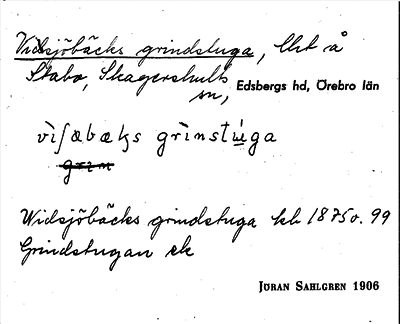 Vidsjöbäcks grindstuga, lht å
Stabo, Skagershults
sn, Edsbergs hd, Örebro län
vìʃæbæks grìnstúga
grin
Widsjöbäcks grindstuga kb 1875 o. 99
Grindstugan ek
JÖRAN SAHLGREN 1906